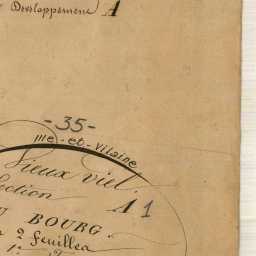 Developpement A
- 35 -
ille-et-Vilaine
Vieux viel.
Section A 1
U BOURG.
2 feuilles
1re